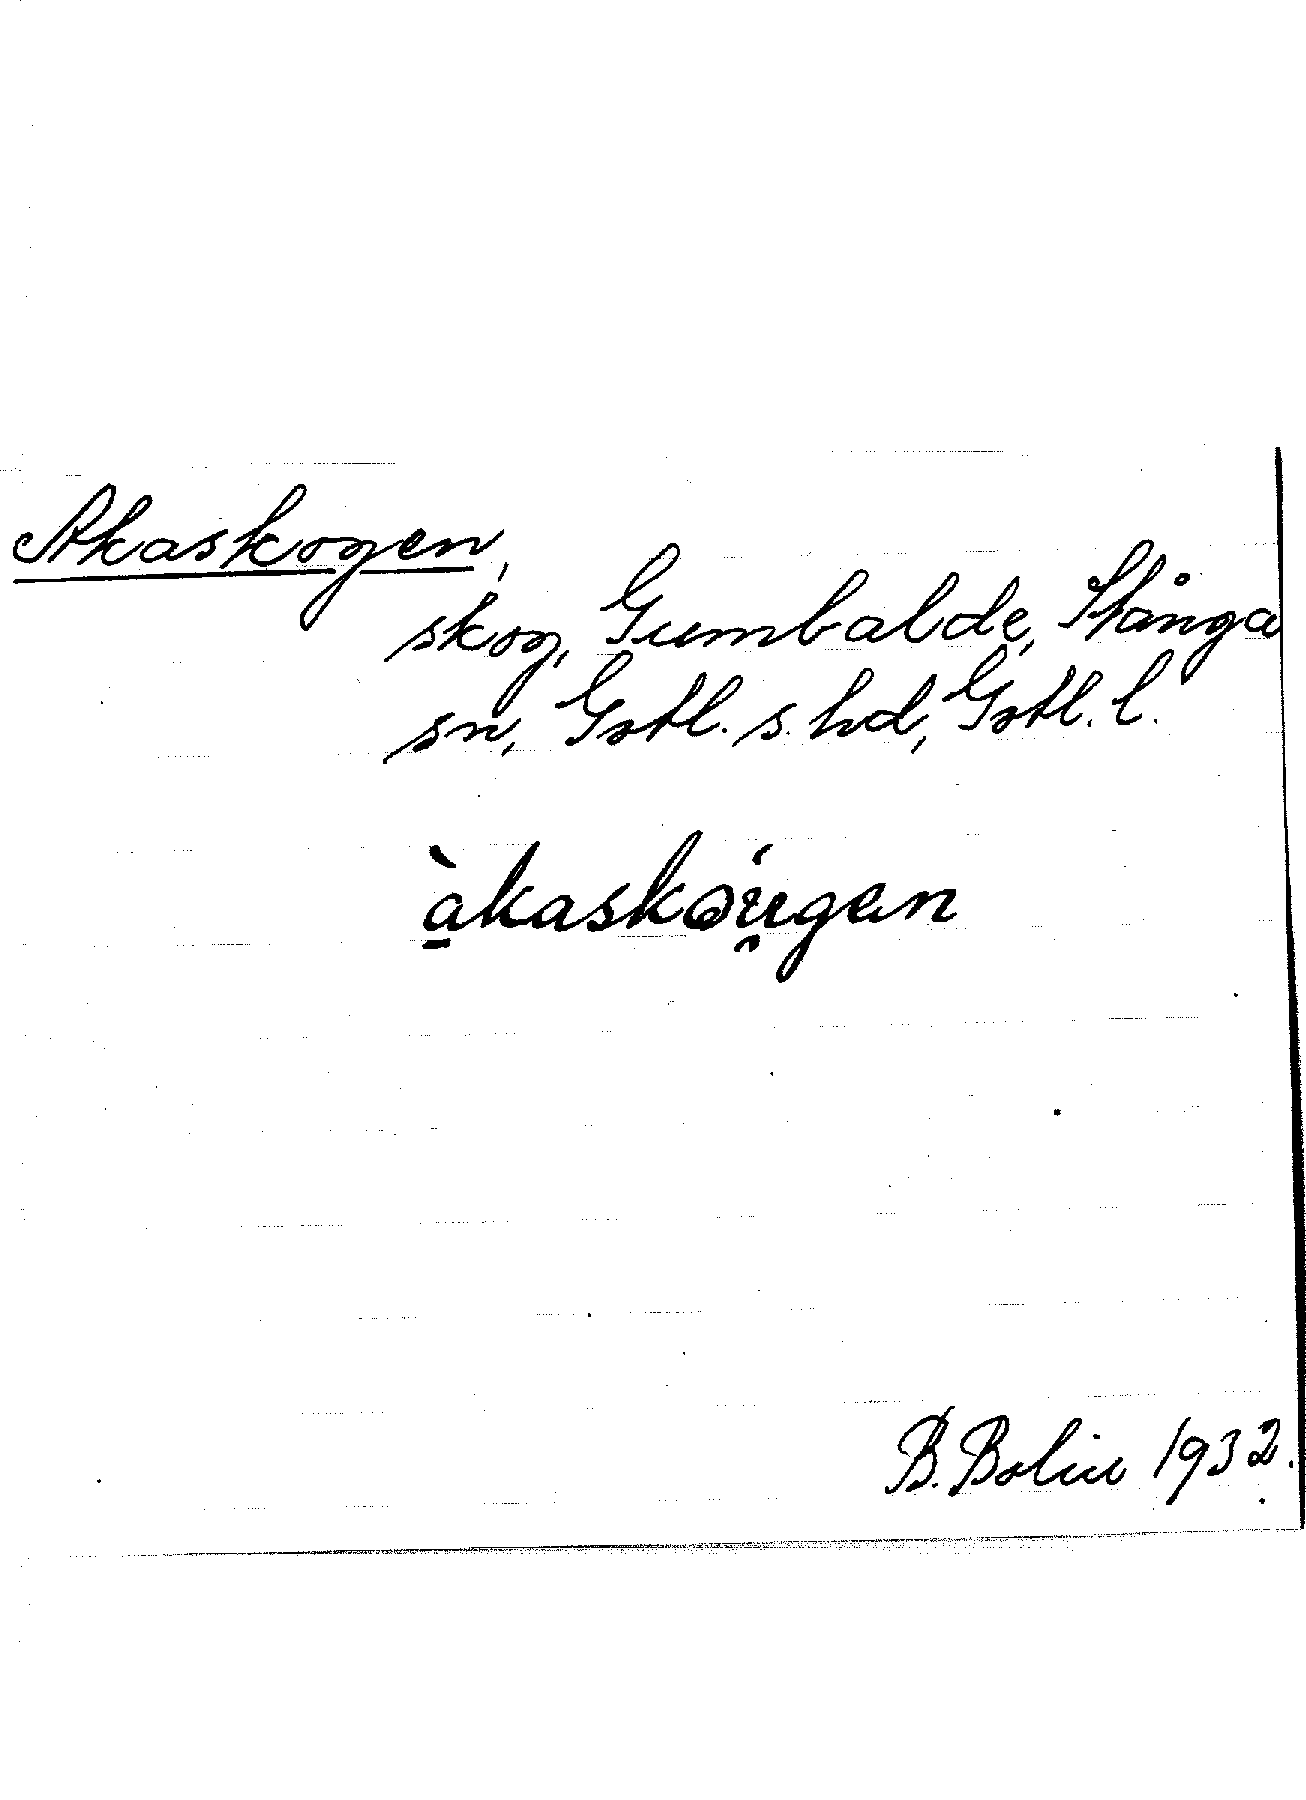 Akaskogen,
skog, Gumbalde, Stånga
sn, Gotl. s. hd, Gotl. l.
àkaskǝú̯gan
B. Bolin 1932.